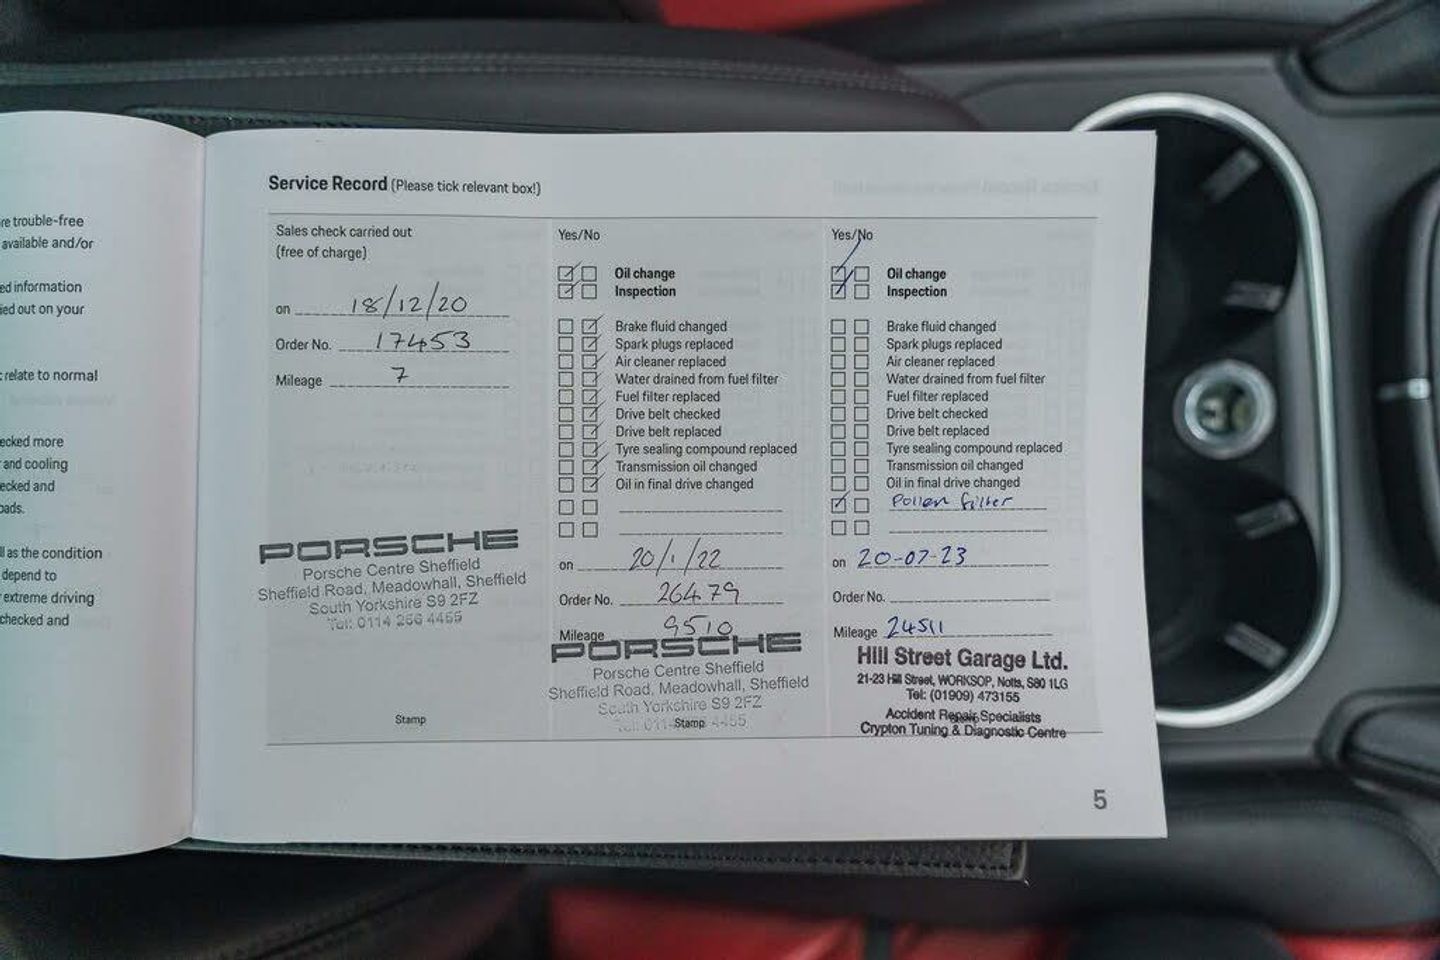 re trouble-free
available and/or
ed information
ied out on your
relate to normal
ecked more
and cooling
ecked and
oads.
ll as the condition
depend to
extreme driving
checked and
Service Record (Please tick relevant box!)
Sales check carried out
(free of charge)
on 18/12/20
Order No. 17453
Mileage 7
PORSCHE
Porsche Centre Sheffield
Sheffield Road, Meadowhall, Sheffield
South Yorkshire S9 2FZ
Tel: 0114 256 4455
Stamp
Yes/No
Oil change
Inspection
Brake fluid changed
Spark plugs replaced
Air cleaner replaced
Water drained from fuel filter
Fuel filter replaced
Drive belt checked
Drive belt replaced
Tyre sealing compound replaced
Transmission oil changed
Oil in final drive changed
on 20/1/22
Order No. 26479
Mileage 9510
PORSCHE
Porsche Centre Sheffield
Sheffield Road, Meadowhall, Sheffield
South Yorkshire S9 2FZ
Stamp 4455
Yes/No
Oil change
Inspection
Brake fluid changed
Spark plugs replaced
Air cleaner replaced
Water drained from fuel filter
Fuel filter replaced
Drive belt checked
Drive belt replaced
Tyre sealing compound replaced
Transmission oil changed
Oil in final drive changed
Pollen filter
on 20-07-23
Order No.
Mileage 24511
Hill Street Garage Ltd.
21-23 Hill Street, WORKSOP, Notts, S80 1LG
Tel: (01909) 473155
Accident Repair Specialists
Crypton Tuning & Diagnostic Centre
5